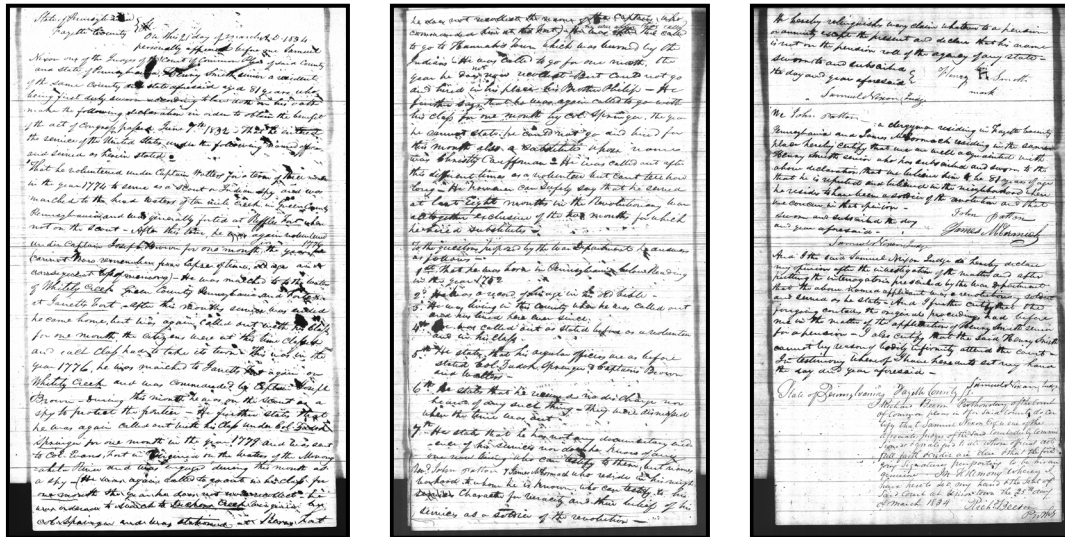 State of Pennsylvania
Fayette County Ss.
On this 21st day of march A.D 1834
personally appeared before me Samuel
Nixon one of the Judges of the Court of Common Pleas of said County
and State of Pennsylvania Henry Smith senior a resident
of the same County and State aforesaid aged 81 years, who
being first duly sworn according to law doth on his oath
make the following declaration in order to obtain the benefit
of the act of Congress passed June 7th 1832 - That he entered
the service of the United States under the following named officers
and served as herein stated
That he volunteered under Captain
in the year 1774 to serve as a Scout or Indian spy and was
marched to the head waters of in Green County
Pennsylvania and generally forted at when
not on the scout - After this time he again volunteered
under Captain Joseph Brown for one month, the year he 1776
cannot now remember from lapse of time, old age and
consequent loss of memory - He was marched to the waters
of Whitely Creek Green County Pennsylvania and forted
at Janetts Fort - After this months service was ended
he came home, but was again called out with his class
for one month the citizens were at this time classed
and each class had to take its turn - this was in the
year 1776. he was marched to Janetts fort again on
Whitely Creek and was commanded by Captain Joseph
Brown - During this month he was on the Scout as a
spy to protect the parties - He further states that
he was again called out with his class under Col.
Springer for one month in the year 1779 and was sent
to Col. Evans, Fort in Virginia on the waters of the Monongahela
River and was engaged during this month as
a spy - He was again called to go out in his class for
one month the year he does not now recollect - he
was ordered to march to Creek Virginia by
Col. Springer and was stationed at Fort
he does not recollect the name of the Captain, who
commanded him at this fort - He was after this called
to go to Hannahs Town which was burned by the
Indians - He was called to go for one month, the
year he does not now recollect But could not go
and hired in his place his Brother Philip - He
further says that he was again called to go with
his class for one month by Col. Springer, the year
he cannot state, he could not go and hired for
this month also a substitute whose name
was Christly Cauffman - He was called out after
this different times as a volunteer but cant tell how
long - He however can safely say that he served
at least Eight months in the Revolutionary War
altogether exclusive of the two months for which
he hired substitutes -
To the questions proposed by the war Department he answers
as follows -
1st That he was born in Pennsylvania
in the year 1752
2d He has a record of his age in his Bible -
3d He was living in this county when he was called out
and has lived here ever since.
4th He was called out as stated before as a volunteer
and in his class.
5th He states, that his regular officers are as before
stated Col. Springer & Captains Brown
and
6th He states that he received no discharge nor
heard of any such thing - they were dismissed
when the time was out -
7 - He states that he has not any documentary evidence
of his services nor does he know of any
one now living who can testify to them, but names
Revd John Patton & James McCormick who reside in his neighborhood
to whom he is known, who can testify to his
character for veracity and their belief of his
services as a soldier of the revolution -
He hereby relinquishes every claim whatever to a pension
or annuity except the present and declares that his name
is not on the pension role of the agency of any state -
sworn to and subscribed
the day and year aforesaid
Henry H Smith
mark
Samuel Nixon Judge
We John Patton - a clergyman residing in Fayette County
Pennsylvania and James McCormick residing in the same
place hereby certify that we are well acquainted with
Henry Smith senior who has subscribed and sworn to the
above declaration, that we believe him to be 81 years of age
that he is reputed and believed in the neighborhood where
he resides to have been a soldier of the revolution and that
we concur in that opinion -
sworn and subscribed the day
and year aforesaid -
John Patton
James McCormick
Samuel Nixon Judge
And I the said Samuel Nixon Judge do hereby declare
my opinion after the investigation of the matter and after
putting the interrogatories prescribed by the war Department
that the above named applicant was a revolutionary soldier
and served as he states - And I further certify that the
foregoing contains the original proceedings had before
me in the matter of the application of Henry Smith senior
for a pension - I also certify that the said Henry Smith
cannot by reason of bodily infirmity attend the court -
In testimony whereof I have hereunto set my hand
the day and year aforesaid -
Samuel Nixon, Judge
State of Pennsylvania Fayette County Ss.
I Richard Beeson Prothonotary of the court
of Common pleas in & for said County do certify
that Samuel Nixon Esq is one of the
associate Judges of the said County duly commissioned
& qualified to all whose official acts
full faith & credit are due that the foregoing
signature purporting to be his are
genuine - In Testimony Whereof I
have hereto set my hand & the seal of
said Court at Uniontown the 25th day
of March 1834
Richd Beeson
Prothy